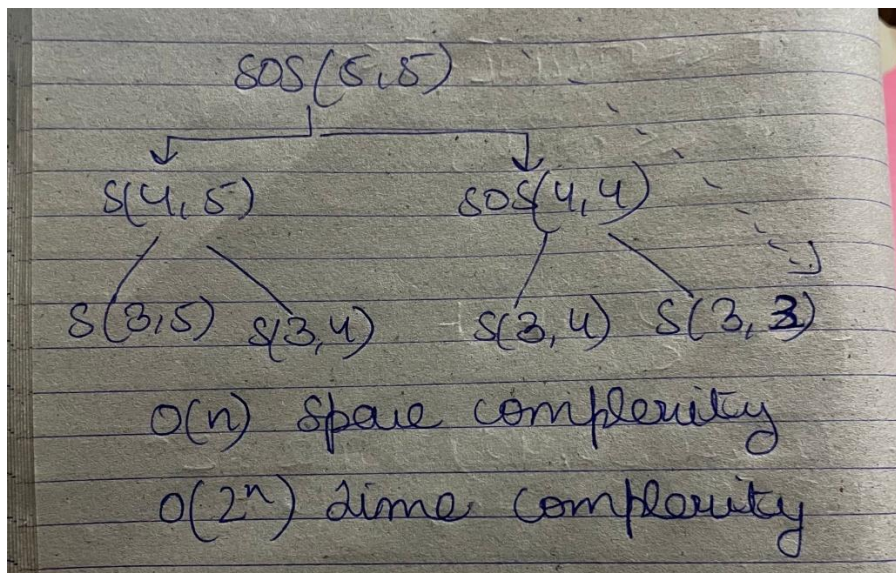 SOS(5,5)
S(4,5) SOS(4,4)
S(3,5) S(3,4) S(3,4) S(3,3)
O(n) Space complexity
O(2ⁿ) time complexity